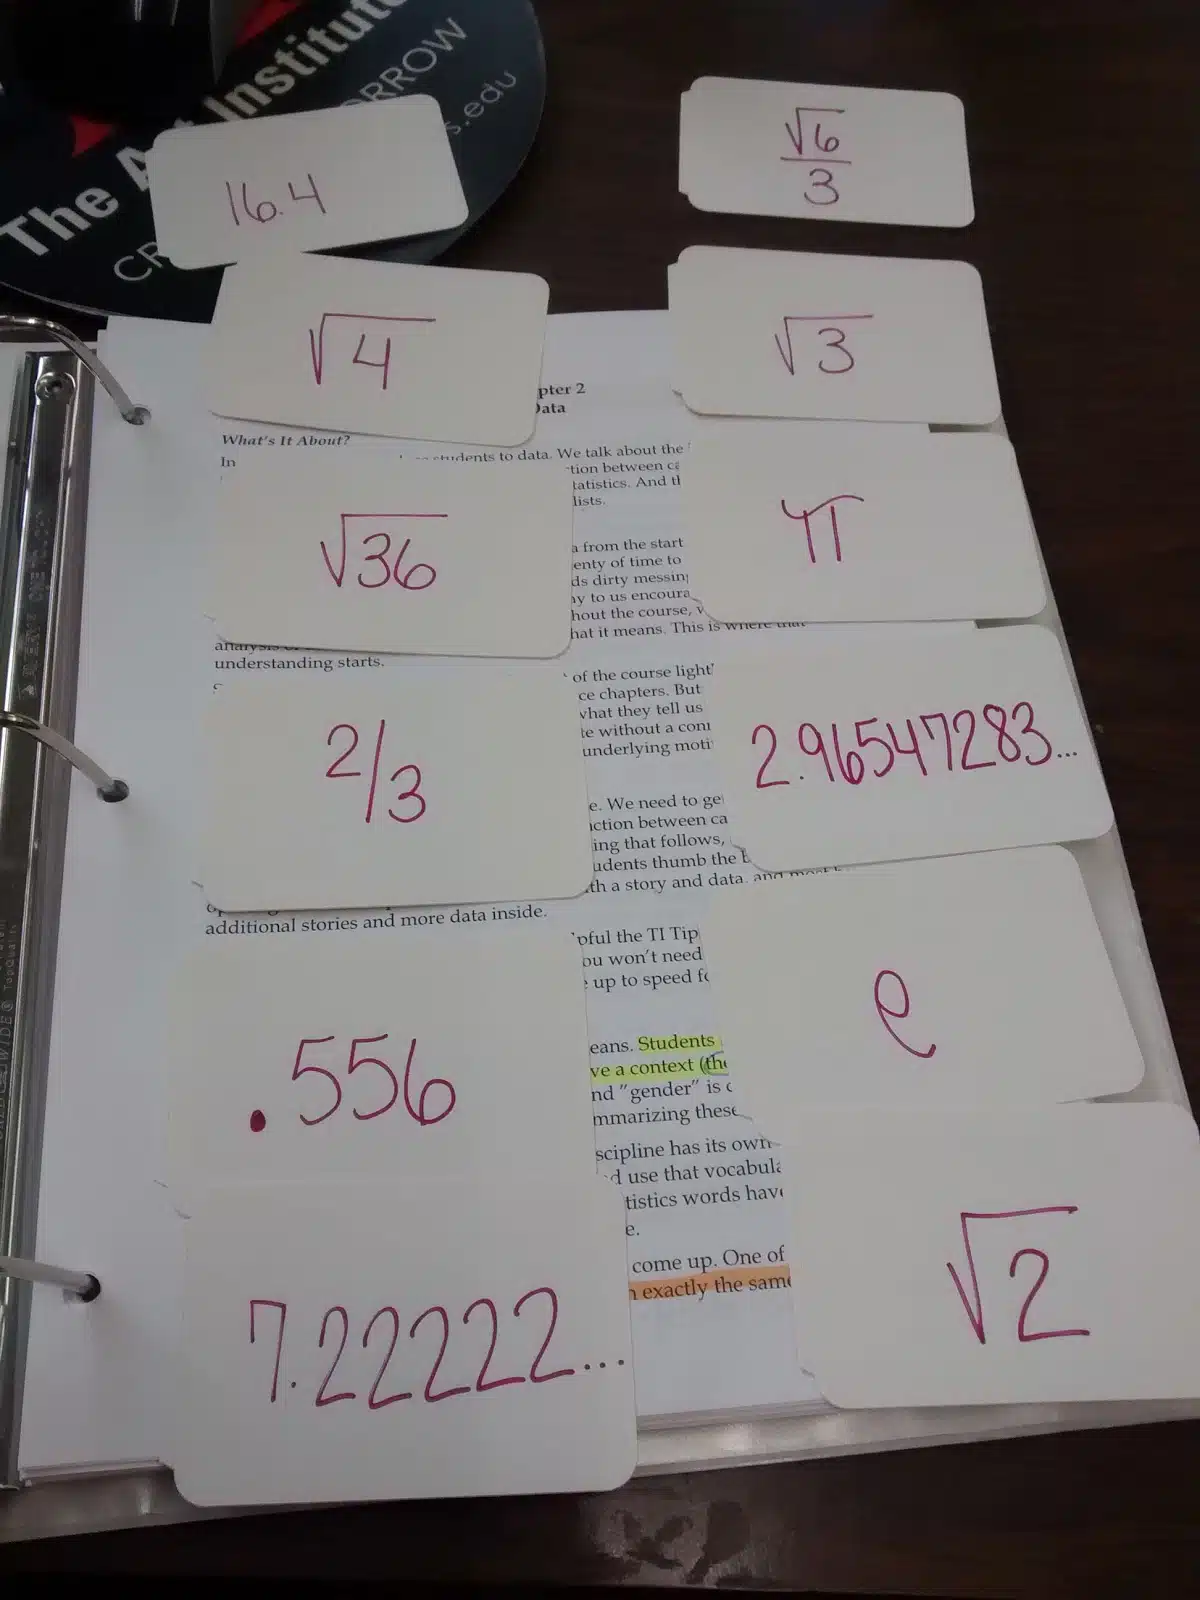 The Art Institute
CR
ORROW
s.edu
16.4
√6
3
√4
√3
pter 2
Data
What's It About?
In
students to data. We talk about the
tion between ca
tatistics. And th
lists.
√36
π
a from the start
enty of time to
ds dirty messing
ny to us encoura
hout the course, w
hat it means. This is where that
understanding starts.
of the course light
ce chapters. But
what they tell us
te without a con
underlying moti
2/3
2.96547283...
e. We need to ge
ction between ca
ing that follows,
udents thumb the b
th a story and data, and most
additional stories and more data inside.
pful the TI Tip
ou won't need
up to speed fo
e
.556
eans. Students
ve a context (the
nd "gender" is c
mmarizing these
scipline has its own
d use that vocabula
tistics words have
e.
come up. One of
n exactly the same
√2
7.22222...